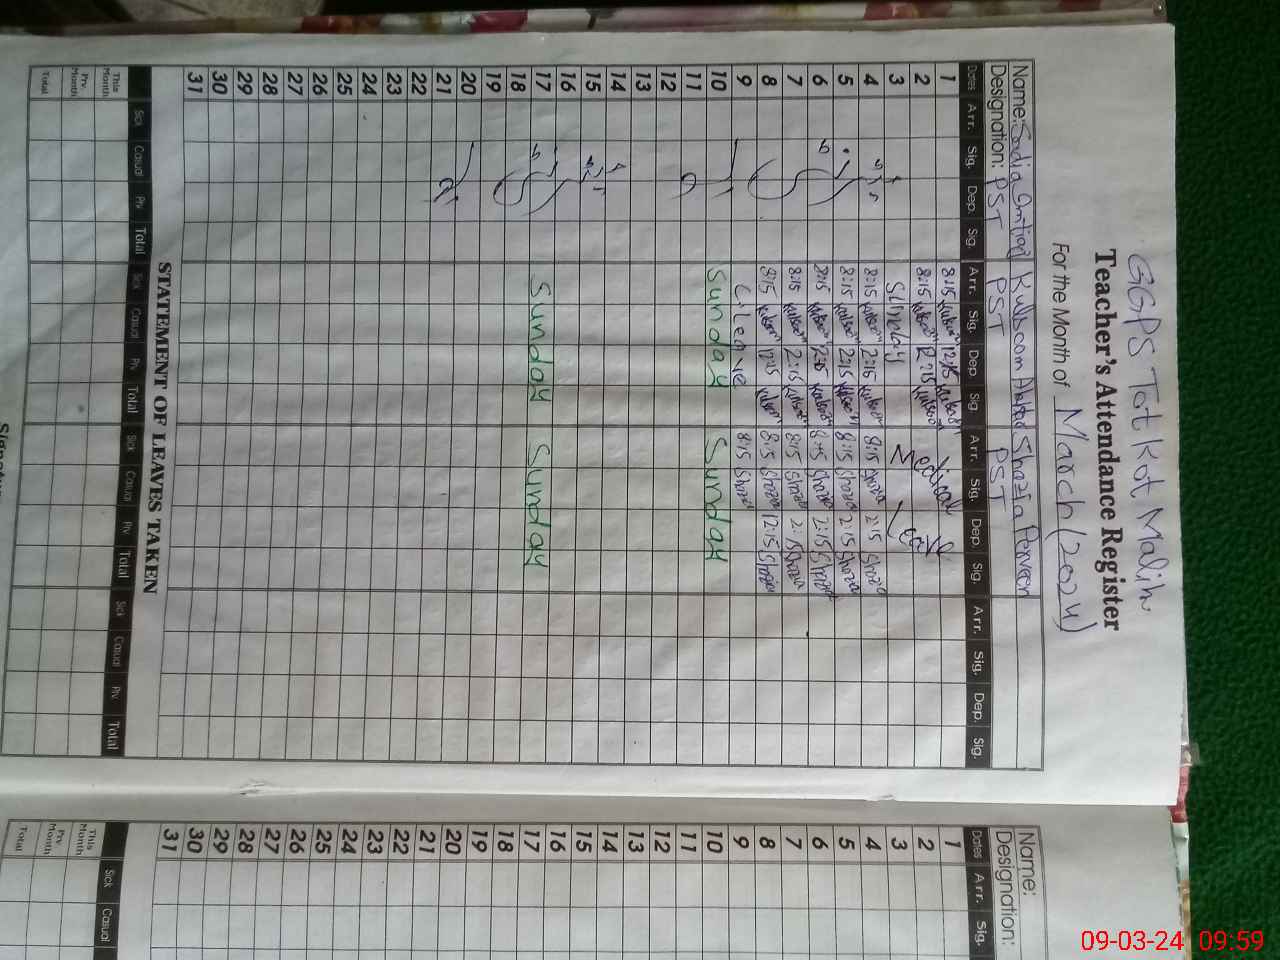 GGPS Tat Kot Malih
Teacher's Attendance Register
For the Month of March (2024)
Name: Sadia Imtiaz Kulsoom Shazia Parveen
Designation: PST PST PST
Dates Arr. Sig. Dep. Sig. Arr. Sig. Dep. Sig. Arr. Sig. Dep. Sig. Arr. Sig. Dep. Sig.
1 8:15 Kulsoom 12:15 Kulsoom Medical Leave
2 8:15 Kulsoom 2:15 Kulsoom
3 Sunday
4 8:15 Kulsoom 2:15 Kulsoom 8:15 Shazia 2:15 Shazia
5 8:15 Kulsoom 2:15 Kulsoom 8:15 Shazia 2:15 Shazia
6 8:15 Kulsoom 2:15 Kulsoom 8:15 Shazia 2:15 Shazia
7 8:15 Kulsoom 2:15 Kulsoom 8:15 Shazia 2:15 Shazia
8 8:15 Kulsoom 12:15 Kulsoom 8:15 Shazia 12:15 Shazia
9 C.Leave 8:15 Shazia
10 Sunday Sunday
11
12
13
14
15
16
17 Sunday Sunday
18
19
20
21
22
23
24
25
26
27
28
29
30
31
STATEMENT OF LEAVES TAKEN
Sick Casual Prv Total Sick Casual Prv Total Sick Casual Prv Total Sick Casual Prv Total
This Month
Prv. Month
Total
Name:
Designation:
Dates Arr. Sig.
1
2
3
4
5
6
7
8
9
10
11
12
13
14
15
16
17
18
19
20
21
22
23
24
25
26
27
28
29
30
31
Sick Casual
This Month
Prv. Month
Total
09-03-24 09:59